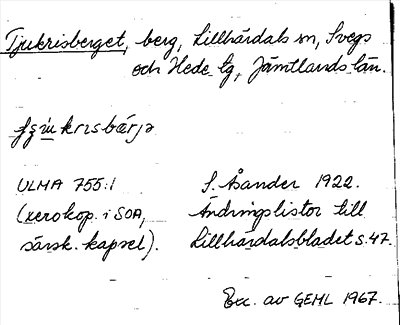 Tjukrisberget, berg, Lillhärdals sn, Svegs
och Hede tg, Jämtlands län.
ULMA 755:1
(xerokop. i SOA,
särsk. kapsel).
S. Åsander 1922.
Ändringslistor till
Lillhärdalsbladet s. 47.
Exc. av GEHL 1967.